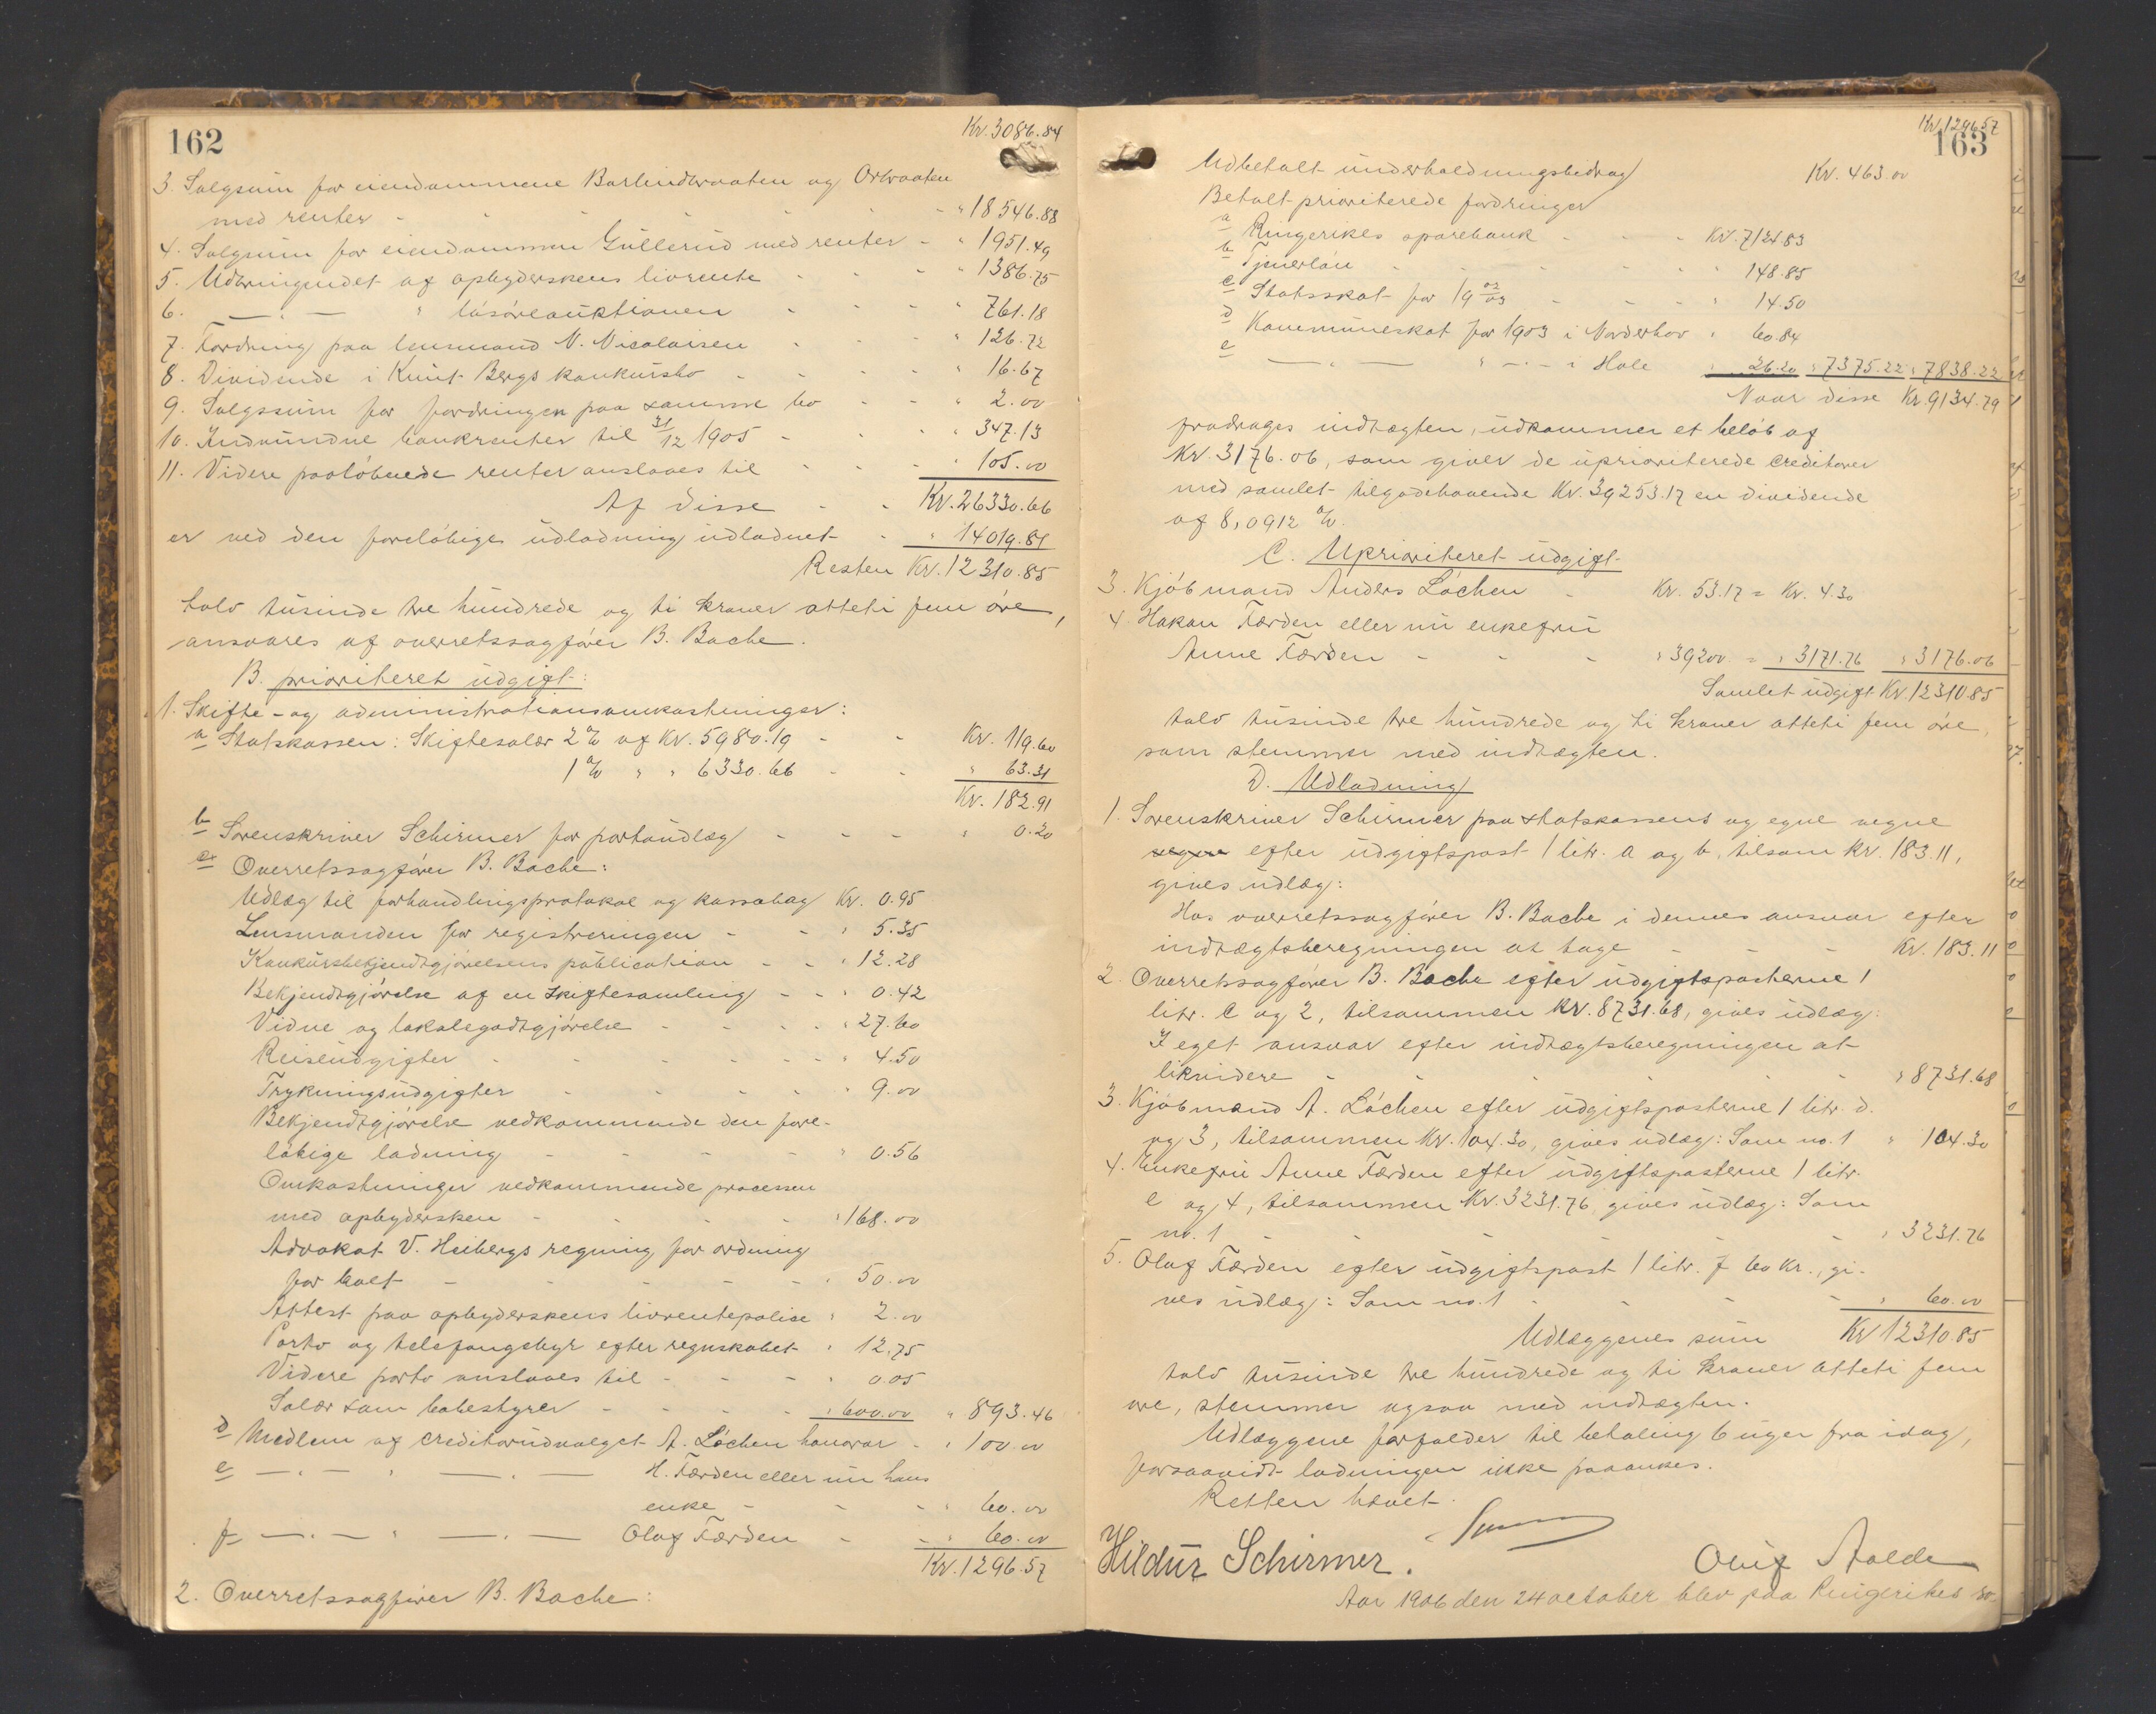 162
Kr. 3086.84
3. Salgsum for eiendommene Barlindbraaten og Orbraaten
med renter - - - - - - " 18546.88
4. Salgsum for eiendommen Gullerud med renter - " 1951.49
5. Udbringendet af opbyderskens livrente - - - " 1386.75
6. — " — " løsøreauktionen - - - " 761.18
7. Fordring paa lensmand N. Nicolaisen - - - " 126.72
8. Dividende i Knut Bergs konkursbo - - - " 16.67
9. Salgssum for fordringen paa samme bo - - " 2.00
10. Indvundne bankrenter til 31/12 1905 - - - " 347.13
11. Videre paaløbnede renter anslaaes til - - - " 105.00
Af disse - - Kr. 26330.66
er ved den foreløbige udlodning udlodnet - " 14019.81
Resten Kr. 12310.85
tolv tusinde tre hundrede og ti kroner otteti fem øre,
ansvares af overretssagfører B. Bache.
B. prioriteret udgift:
1. Skifte- og administrationsomkostninger:
a Statskassen: Skiftesalær 2 % af Kr. 5980.19 - - Kr. 119.60
1 % " " 6330.66 - - " 63.31
Kr. 182.91
b Sorenskriver Schirmer for portoudlæg - - - " 0.20
c Overretssagfører B. Bache:
Udlæg til forhandlingsprotokol og kassabog Kr. 0.95
Lensmanden for registreringen - - " 5.35
Konkursbekjendtgjørelsens publication - - " 12.28
Bekjendtgjørelse af en skiftesamling - - " 0.42
Vidne og lokalegodtgjørelse - - - " 27.60
Reiseudgifter - - - - - " 4.50
Trykningsudgifter - - - - " 9.00
Bekjendtgjørelse vedkommende den fore-
løbige lodning - - - - " 0.56
Omkostninger vedkommende processen
med opbydersken - - - - " 168.00
Advokat V. Heibergs regning for ordning
for boet - - - - - " 50.00
Attest paa opbyderskens livrentepolice " 2.00
Porto og telefongebyr efter regnskabet " 12.75
Videre porto anslaaes til - - - " 0.05
Salær som bobestyrer - - - - " 600.00 " 893.46
d Medlem af creditorudvalget A. Løchen honorar - " 100.00
e — " — " — " — H. Færden eller nu hans
enke - - - " 60.00
f — " — " — " — Olaf Færden - - " 60.00
Kr. 1296.57
2. Overretssagfører B. Bache:
Kr. 1296.57
163
Udbetalt underholdningsbidrag Kr. 463.00
Betalt prioriterede fordringer
a Ringerikes sparebank - - - Kr. 7124.83
b Tjenerløn - - - - - " 148.85
c Statsskat for 19 02/03 - - - - " 14.50
d Kommuneskat for 1903 i Norderhov " 60.84
e — " — " — " — i Hole " 26.20 " 7375.22 " 7838.22
Naar disse Kr. 9134.79
fradrages indtægten, udkommer et beløb af
Kr. 3176.06, som giver de uprioriterede creditorer
med samlet tilgodehavende Kr. 39253.17 en dividende
af 8,0912 %.
C. Uprioriteret udgift
3. Kjøbmand Anders Løchen - Kr. 53.17 = Kr. 4.30
4. Hakon Færden eller nu enkefru
Anne Færden - - - " 39200 = " 3171.76 " 3176.06
Samlet udgift Kr. 12310.85
tolv tusinde tre hundrede og ti kroner otteti fem øre,
som stemmer med indtægten.
D. Udlodning
1. Sorenskriver Schirmer paa statskassens og egne vegne
vegne efter udgiftspost 1 litr. a og b, tilsam. kr. 183.11,
gives udlæg:
Hos overretssagfører B. Bache i dennes ansvar efter
indtægtsberegningen at tage - - - Kr. 183.11
2. Overretssagfører B. Bache efter udgiftsposterne 1
litr. c og 2, tilsammen Kr. 8731.68, gives udlæg:
I eget ansvar efter indtægtsberegningen at
likvidere - - - - - " 8731.68
3. Kjøbmand A. Løchen efter udgiftsposterne 1 litr. d.
og 3, tilsammen Kr. 104.30, gives udlæg: Som no. 1 " 104.30
4. Enkefru Anne Færden efter udgiftsposterne 1 litr.
e og 4, tilsammen Kr. 3231.76, gives udlæg: Som
no. 1 - - - - - " 3231.76
5. Olaf Færden efter udgiftspost 1 litr. f 60 Kr., gi-
ves udlæg: Som no. 1 - - - - " 60.00
Udlæggenes sum Kr 12310.85
tolv tusinde tre hundrede og ti kroner otteti fem
øre, stemmer ogsaa med indtægten.
Udlæggene forfalder til betaling 6 uger fra idag,
forsaavidt lodningen ikke paaankes.
Retten hævet.
Hildur Schirmer.
Aar 1906 den 24 october blev paa Ringerikes so-